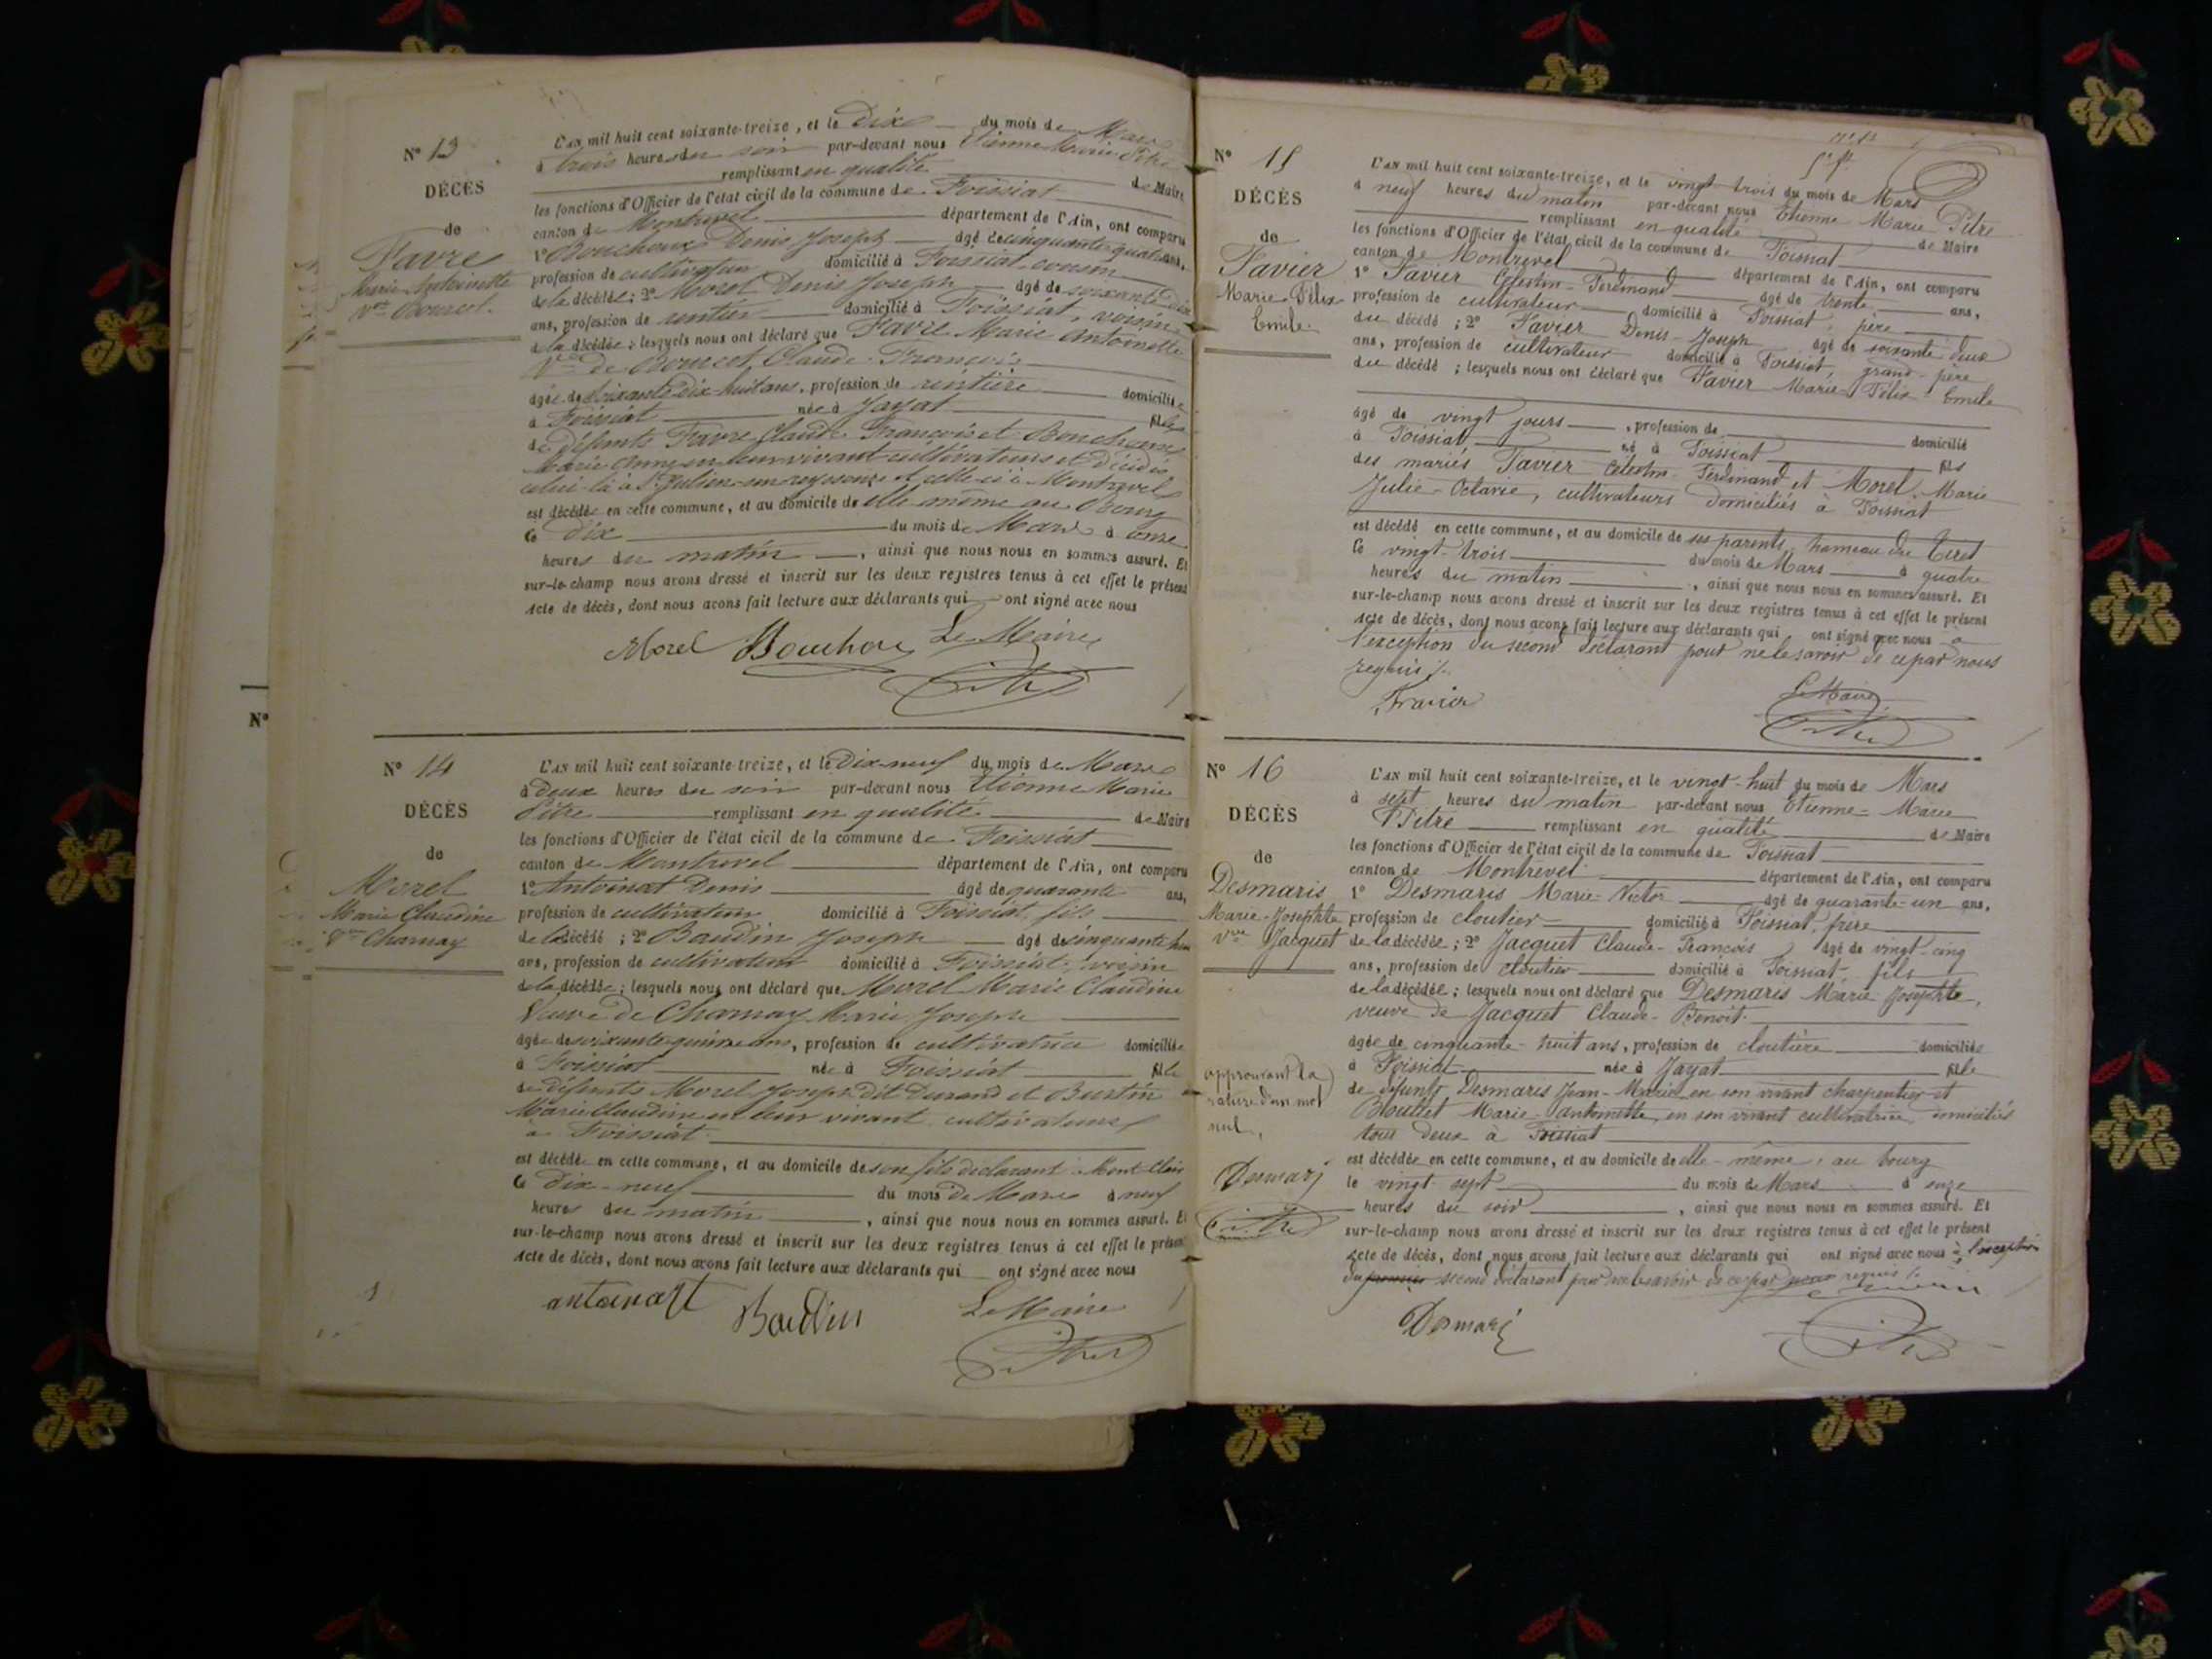 N° 13
DÉCÈS
de
Favre
Marie Antoinette
Vve Bourcet.
L'AN mil huit cent soixante-treize, et le Dix du mois de Mars
à trois heures du soir par-devant nous Etienne Marie Pitre
remplissant en qualité de Maire
les fonctions d'Officier de l'état civil de la commune de Foissiat
canton de Montrevel département de l'Ain, ont comparu
1° Bouchoux Denis Joseph âgé de cinquante quatre ans,
profession de cultivateur domicilié à Foissiat cousin
de la décédée ; 2° Morel Denis Joseph âgé de soixante dix
ans, profession de rentier domicilié à Foissiat, voisin
de la décédée ; lesquels nous ont déclaré que Favre Marie Antoinette
Vve de Bourcet Claude François
âgée de soixante dix huit ans, profession de rentière domiciliée
à Foissiat née à Jayat fille
de défunts Favre Claude François et Bouchoux
Marie Anne en leur vivant cultivateurs et décédés
celui-là à St Julien-sur-reyssouze et celle-ci à Montrevel
est décédée en cette commune, et au domicile de elle même au Bourg
le dix du mois de Mars à onze
heures du matin, ainsi que nous nous en sommes assuré. Et
sur-le-champ nous avons dressé et inscrit sur les deux registres tenus à cet effet le présent
acte de décès, dont nous avons fait lecture aux déclarants qui ont signé avec nous
Morel Bouchou Le Maire
Pitre
N° 14
DÉCÈS
de
Morel
Marie Claudine
Vve Charnay
L'AN mil huit cent soixante-treize, et le Dix-neuf du mois de Mars
à deux heures du soir par-devant nous Etienne Marie
Pitre remplissant en qualité de Maire
les fonctions d'Officier de l'état civil de la commune de Foissiat
canton de Montrevel département de l'Ain, ont comparu
1° Antoinat Denis âgé de quarante ans,
profession de cultivateur domicilié à Foissiat fils
de la décédé ; 2° Baudin Joseph âgé de cinquante
ans, profession de cultivateur domicilié à Foissiat, voisin
de la décédée ; lesquels nous ont déclaré que Morel Marie Claudine
Veuve de Charnay Marie Joseph
âgée de soixante quinze ans, profession de cultivatrice domiciliée
à Foissiat née à Foissiat fille
de défunts Morel Joseph dit Durand et Burtin
Marie Claudine en leur vivant cultivateurs
à Foissiat
est décédée en cette commune, et au domicile de son fils déclarant
le dix-neuf du mois de Mars à neuf
heures du matin, ainsi que nous nous en sommes assuré. Et
sur-le-champ nous avons dressé et inscrit sur les deux registres tenus à cet effet le présent
acte de décès, dont nous avons fait lecture aux déclarants qui ont signé avec nous
antoinat Baudin Le Maire
Pitre
N° 15
DÉCÈS
de
Favier
Marie-Félix
Emile.
L'AN mil huit cent soixante-treize, et le vingt trois du mois de Mars
à neuf heures du matin par-devant nous Etienne Marie Pitre
remplissant en qualité de Maire
les fonctions d'Officier de l'état civil de la commune de Foissiat
canton de Montrevel département de l'Ain, ont comparu
1° Favier Célestin-Ferdinand âgé de trente ans,
profession de cultivateur domicilié à Foissiat, père
du décédé ; 2° Favier Denis-Joseph âgé de soixante deux
ans, profession de cultivateur domicilié à Foissiat, grand-père
du décédé ; lesquels nous ont déclaré que Favier Marie-Félix Emile
âgé de vingt jours, profession de domicilié
à Foissiat né à Foissiat fils
des mariés Favier Célestin Ferdinand et Morel Marie
Julie-Octavie, cultivateurs domiciliés à Foissiat
est décédé en cette commune, et au domicile de ses parents, hameau du
le vingt-trois du mois de Mars à quatre
heures du matin, ainsi que nous nous en sommes assuré. Et
sur-le-champ nous avons dressé et inscrit sur les deux registres tenus à cet effet le présent
acte de décès, dont nous avons fait lecture aux déclarants qui ont signé avec nous à
l'exception du second déclarant pour ne le savoir de ce par nous
requis ./.
Favier
Le Maire
Pitre
N° 16
DÉCÈS
de
Desmaris
Marie-Josephte
Vve Jacquet
approuvant la
rature d'un mot
nul,
Desmaris
Pitre
L'AN mil huit cent soixante-treize, et le vingt-huit du mois de Mars
à sept heures du matin par-devant nous Etienne-Marie
Pitre remplissant en qualité de Maire
les fonctions d'Officier de l'état civil de la commune de Foissiat
canton de Montrevel département de l'Ain, ont comparu
1° Desmaris Marie-Victor âgé de quarante-un ans,
profession de cloutier domicilié à Foissiat, frère
de la décédée ; 2° Jacquet Claude-François âgé de vingt-cinq
ans, profession de cloutier domicilié à Foissiat fils
de la décédée ; lesquels nous ont déclaré que Desmaris Marie Josephte,
veuve de Jacquet Claude-Benoit.
âgée de cinquante-huit ans, profession de cloutière domiciliée
à Foissiat née à Jayat fille
de défunts Desmaris Jean-Marie en son vivant charpentier et
Blouzet Marie-Antoinette, en son vivant cultivatrice domiciliés
tous deux à Foissiat
est décédée en cette commune, et au domicile de elle-même, au bourg
le vingt sept du mois de Mars à onze
heures du soir, ainsi que nous nous en sommes assuré. Et
sur-le-champ nous avons dressé et inscrit sur les deux registres tenus à cet effet le présent
acte de décès, dont nous avons fait lecture aux déclarants qui ont signé avec nous à l'exception
du premier second déclarant pour ne le savoir de ce par nous requis ./.
Desmaris
Pitre
N°